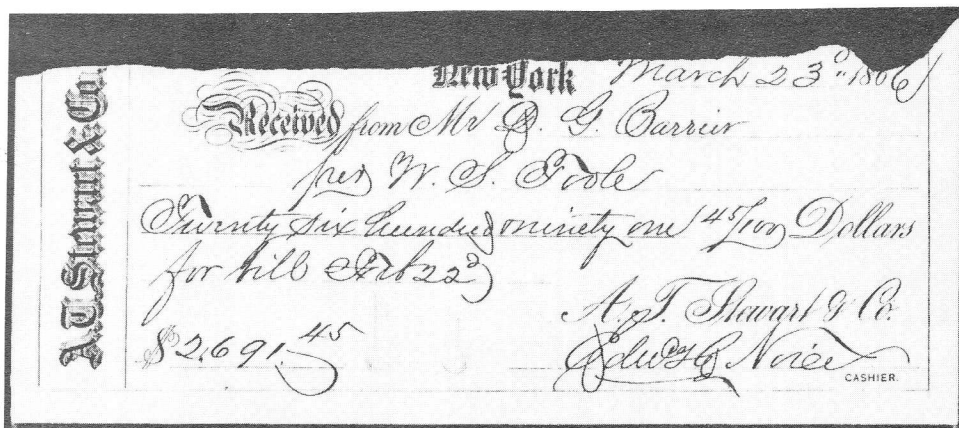 A.T. Stewart & Co.
New York March 23d 1866
Received from Mr D. G. Barrier
per W. S. Toole
Twenty six hundred & ninety one 45/100 Dollars
for bill Feb 22d
A. T. Stewart & Co.
$2,691.45
CASHIER.